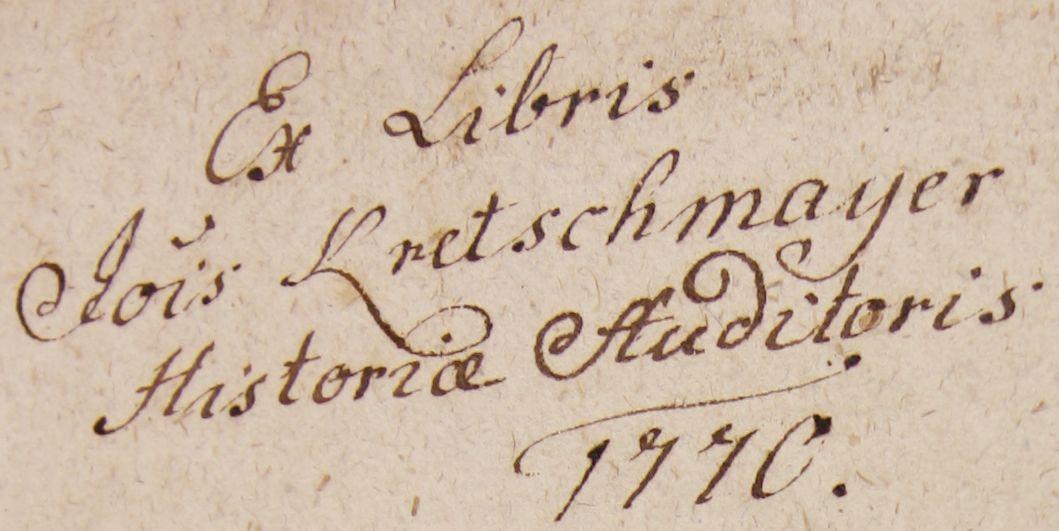 Ex Libris
Jois Kretschmayer
Historiæ Auditoris
1770.